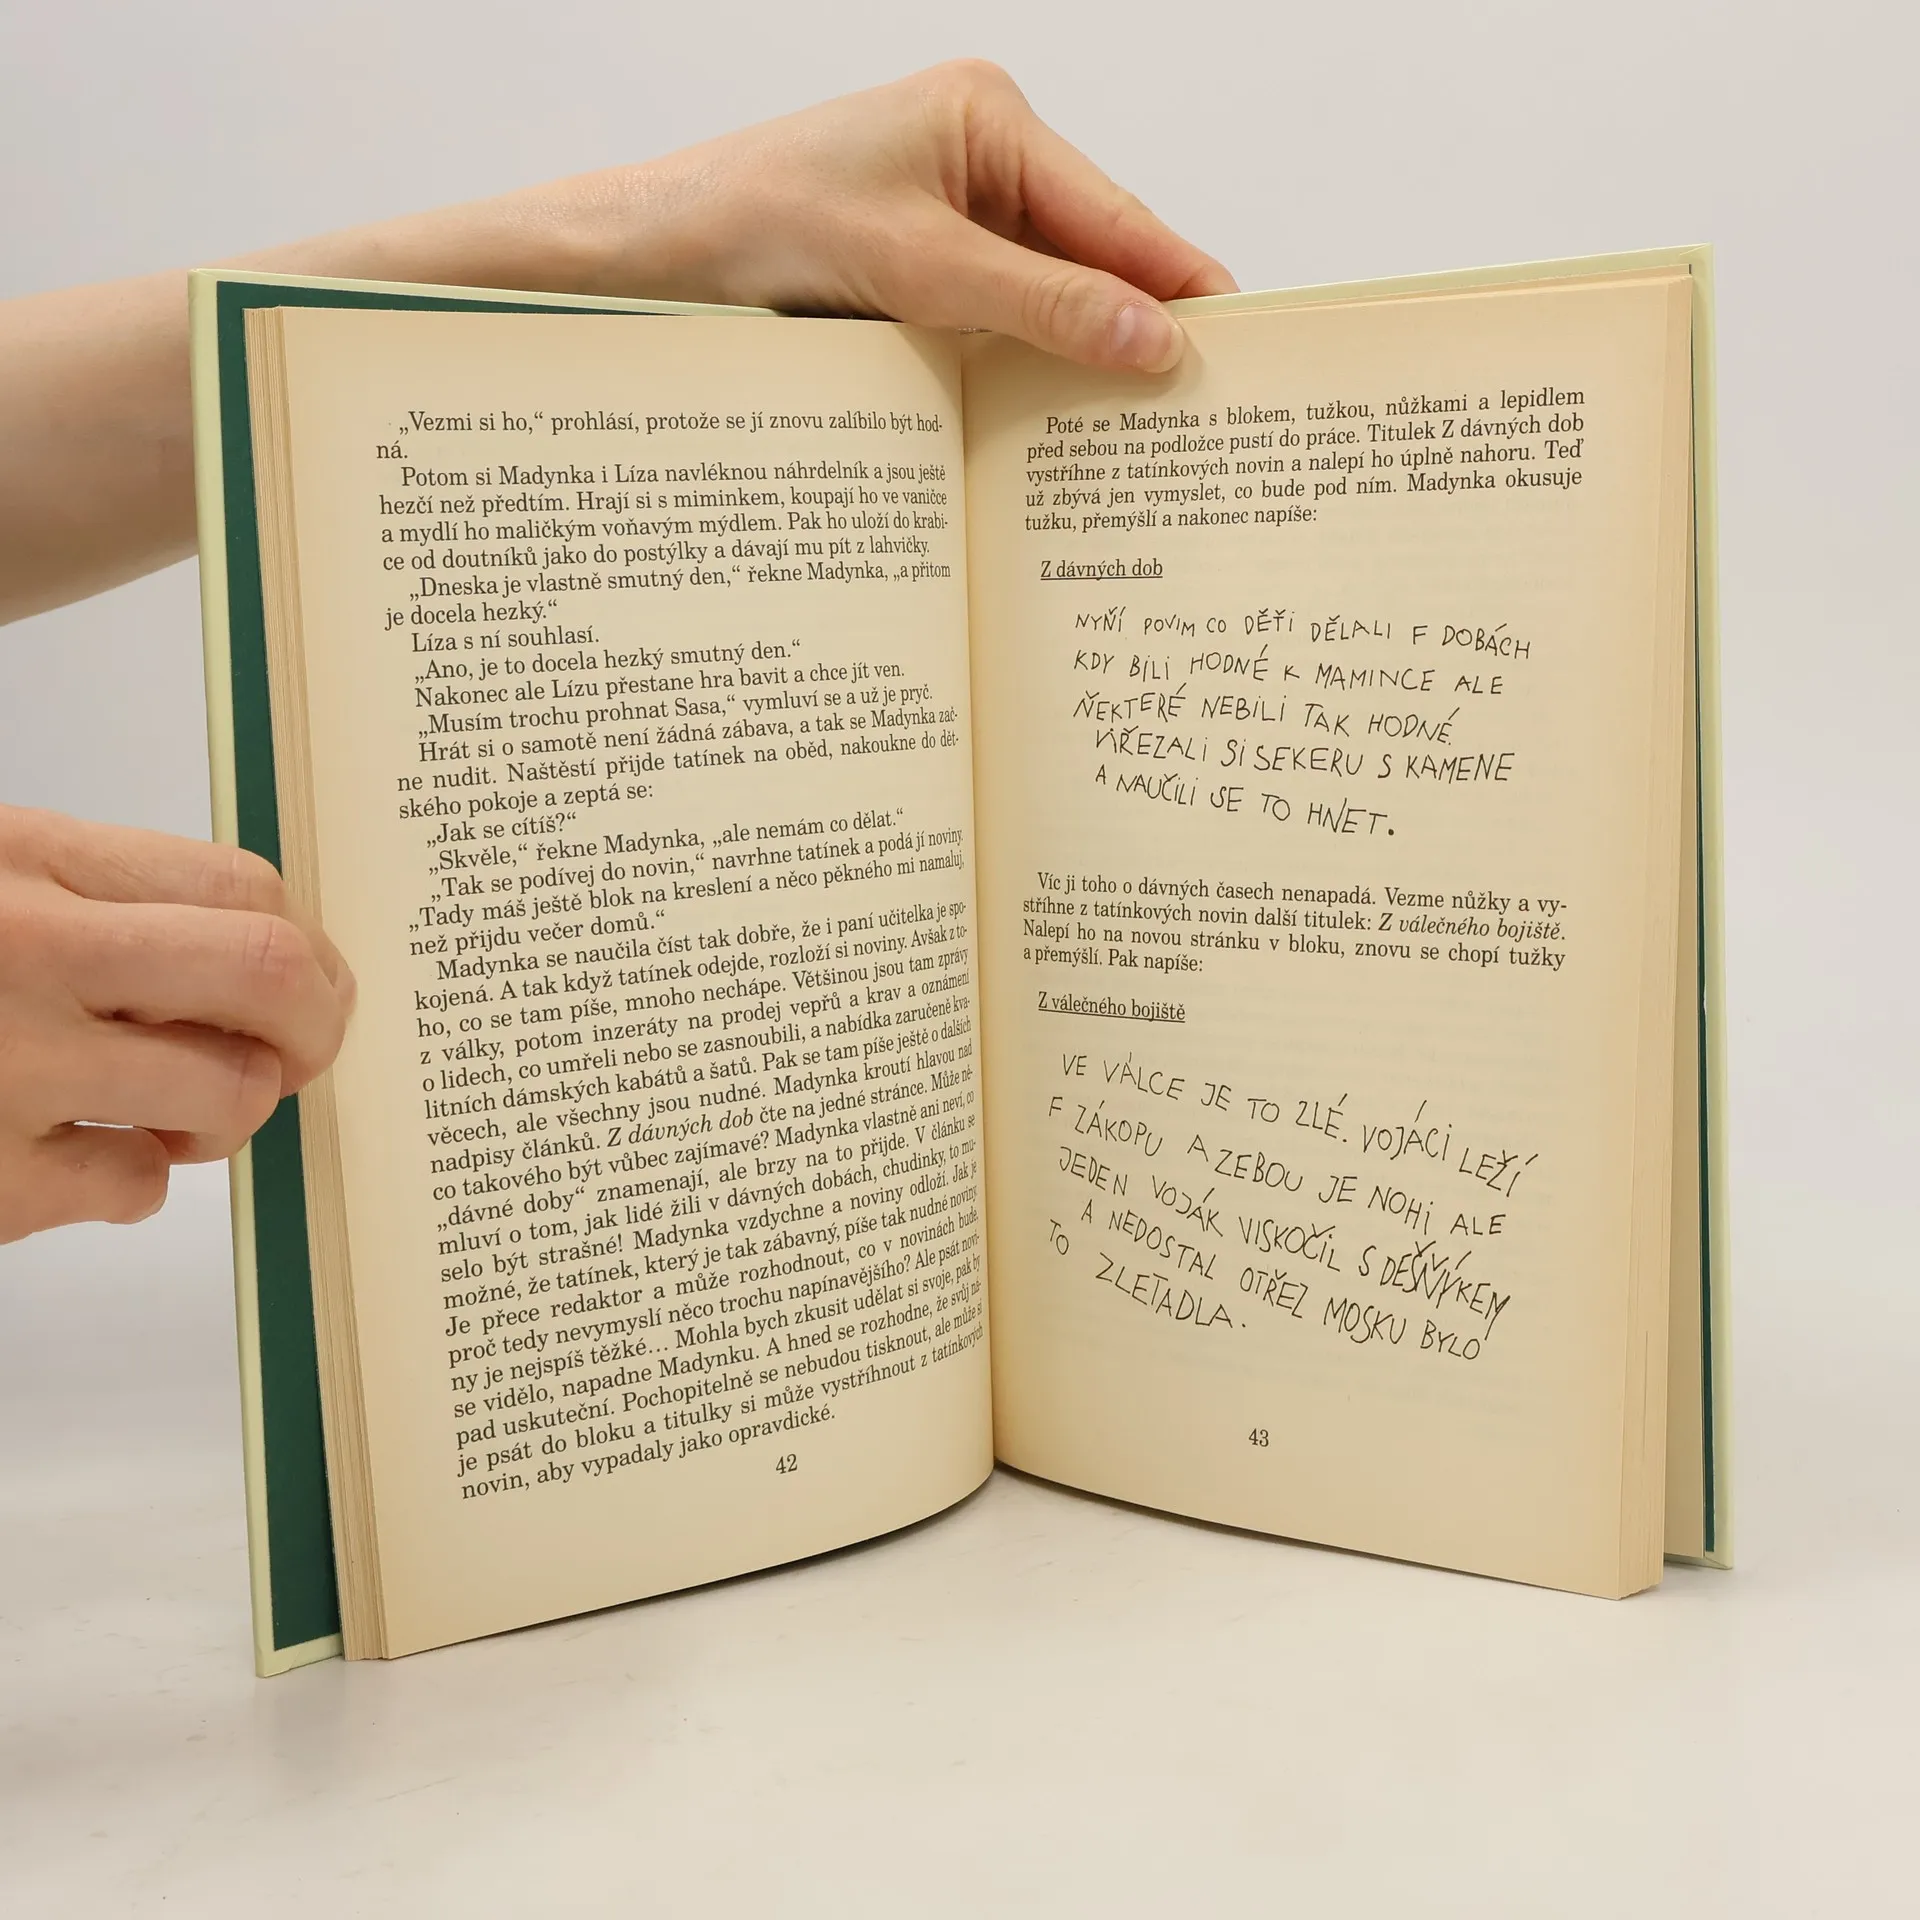 „Vezmi si ho,“ prohlásí, protože se jí znovu zalíbilo být hod-
ná.
Potom si Madynka i Líza navléknou náhrdelník a jsou ještě
hezčí než předtím. Hrají si s miminkem, koupají ho ve vaničce
a mydlí ho maličkým voňavým mýdlem. Pak ho uloží do krabi-
ce od doutníků jako do postýlky a dávají mu pít z lahvičky.
„Dneska je vlastně smutný den,“ řekne Madynka, „a přitom
je docela hezký.“
Líza s ní souhlasí.
„Ano, je to docela hezký smutný den.“
Nakonec ale Lízu přestane hra bavit a chce jít ven.
„Musím trochu prohnat Sasa,“ vymluví se a už je pryč.
Hrát si o samotě není žádná zábava, a tak se Madynka zač-
ne nudit. Naštěstí přijde tatínek na oběd, nakoukne do dět-
ského pokoje a zeptá se:
„Jak se cítíš?“
„Skvěle,“ řekne Madynka, „ale nemám co dělat.“
„Tak se podívej do novin,“ navrhne tatínek a podá jí noviny.
„Tady máš ještě blok na kreslení a něco pěkného mi namaluj,
než přijdu večer domů.“
Madynka se naučila číst tak dobře, že i paní učitelka je spo-
kojená. A tak když tatínek odejde, rozloží si noviny. Avšak z to-
ho, co se tam píše, mnoho nechápe. Většinou jsou tam zprávy
z války, potom inzeráty na prodej vepřů a krav a oznámení
o lidech, co umřeli nebo se zasnoubili, a nabídka zaručeně kva-
litních dámských kabátů a šatů. Pak se tam píše ještě o dalších
věcech, ale všechny jsou nudné. Madynka kroutí hlavou nad
nadpisy článků. Z dávných dob čte na jedné stránce. Může ně-
co takového být vůbec zajímavé? Madynka vlastně ani neví, co
„dávné doby“ znamenají, ale brzy na to přijde. V článku se
mluví o tom, jak lidé žili v dávných dobách, chudinky, to mu-
selo být strašné! Madynka vzdychne a noviny odloží. Jak je
možné, že tatínek, který je tak zábavný, píše tak nudné noviny.
Je přece redaktor a může rozhodnout, co v novinách bude,
proč tedy nevymyslí něco trochu napínavějšího? Ale psát novi-
ny je nejspíš těžké... Mohla bych zkusit udělat si svoje, pak by
se vidělo, napadne Madynku. A hned se rozhodne, že svůj ná-
pad uskuteční. Pochopitelně se nebudou tisknout, ale může si
je psát do bloku a titulky si může vystříhnout z tatínkových
novin, aby vypadaly jako opravdické.
42
Poté se Madynka s blokem, tužkou, nůžkami a lepidlem
před sebou na podložce pustí do práce. Titulek Z dávných dob
vystříhne z tatínkových novin a nalepí ho úplně nahoru. Teď
už zbývá jen vymyslet, co bude pod ním. Madynka okusuje
tužku, přemýšlí a nakonec napíše:
Z dávných dob
NYŇÍ POVIM CO DĚŤI DĚLALI F DOBÁCH
KDY BILI HODNÉ K MAMINCE ALE
ŇEKTERÉ NEBILI TAK HODNÉ.
VIŘEZALI SI SEKERU S KAMENE
A NAUČILI SE TO HNET.
Víc ji toho o dávných časech nenapadá. Vezme nůžky a vy-
stříhne z tatínkových novin další titulek: Z válečného bojiště.
Nalepí ho na novou stránku v bloku, znovu se chopí tužky
a přemýšlí. Pak napíše:
Z válečného bojiště
VE VÁLCE JE TO ZLÉ. VOJÁCI LEŽÍ
F ZÁKOPU A ZEBOU JE NOHI ALE
JEDEN VOJÁK VISKOČIL S DEŠŇÝKEM
A NEDOSTAL OTŘEZ MOSKU BYLO
TO ZLEŤADLA.
43